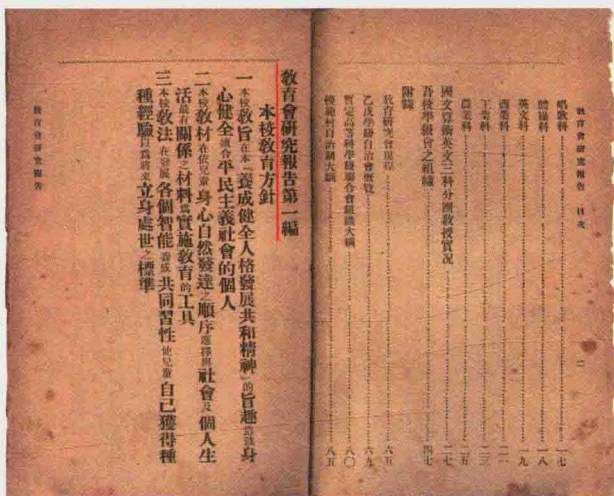 教育會研究報告 目次
唱歌科 一七
體操科 一八
英文科 一九
商業科 二一
工業科 二三
農業科 二五
國文算術英文三科分團教授實況 二七
吾校學級會之組織 四七
附錄
教育研究會規程 六五
乙戊學級自治會概覽 六九
暫定高等科學級聯合會組織大綱 八〇
模範村自治制大綱 八五
二
教育會研究報告第一編
本校教育方針
一 本校教旨在本「養成健全人格發展共和精神」的旨趣造就身
心健全適合平民主義社會的個人
二 本校教材在依兒童身心自然發達之順序選擇與社會及個人生
活最有關係之材料為實施教育的工具
三 本校教法在發展各個智能養成共同習性使兒童自己獲得種
種經驗以為將來立身處世之標準
教育會研究報告